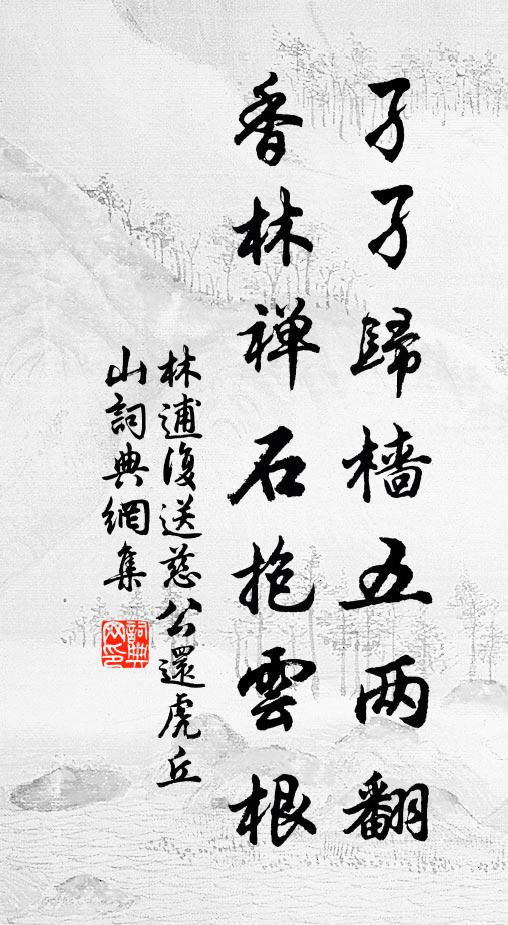 孑孑歸檣五两翻
香林禅石抱雲根
林逋復送慈公還虎丘
山詞典網集
詞典网印